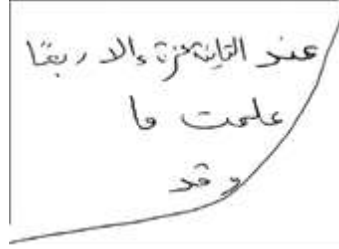 عند الثانية عشرة والا ربعًا
علمت ما
وقد